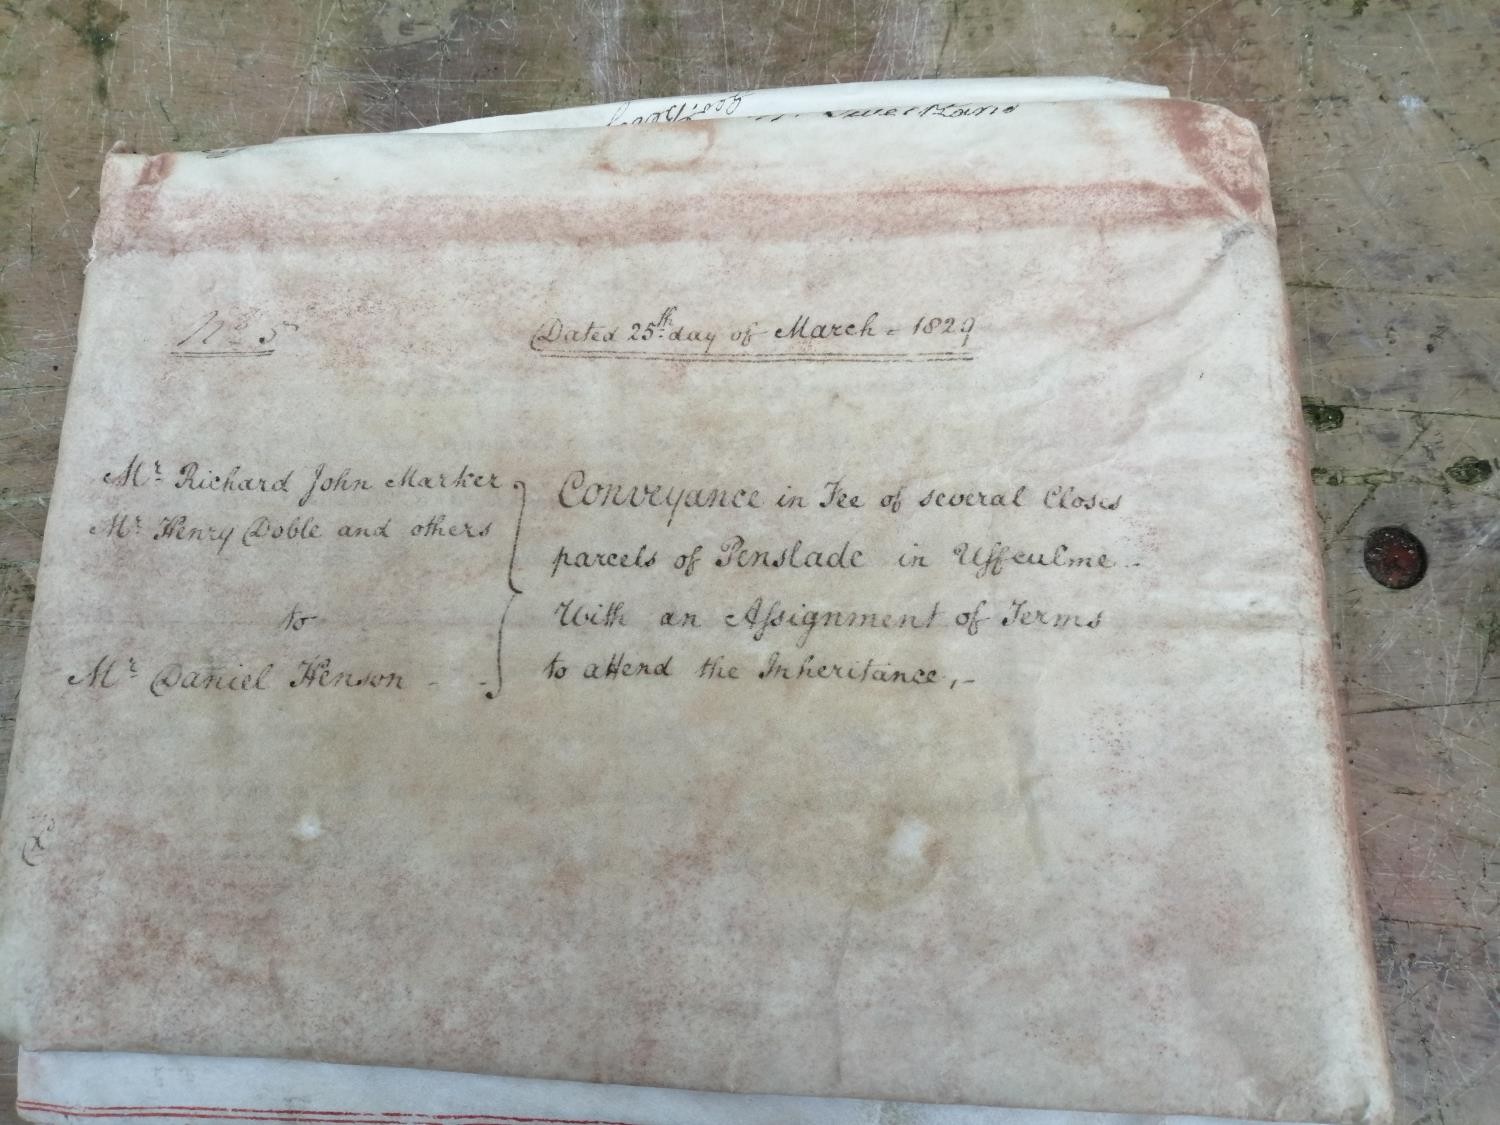 Sweetland
No. 5
Dated 25th day of March - 1829
Mr. Richard John Marker
Mr. Henry Doble and others
to
Mr. Daniel Henson - -
Conveyance in Fee of several Closes
parcels of Penslade in Uffculme -
With an Assignment of Terms
to attend the Inheritance,-